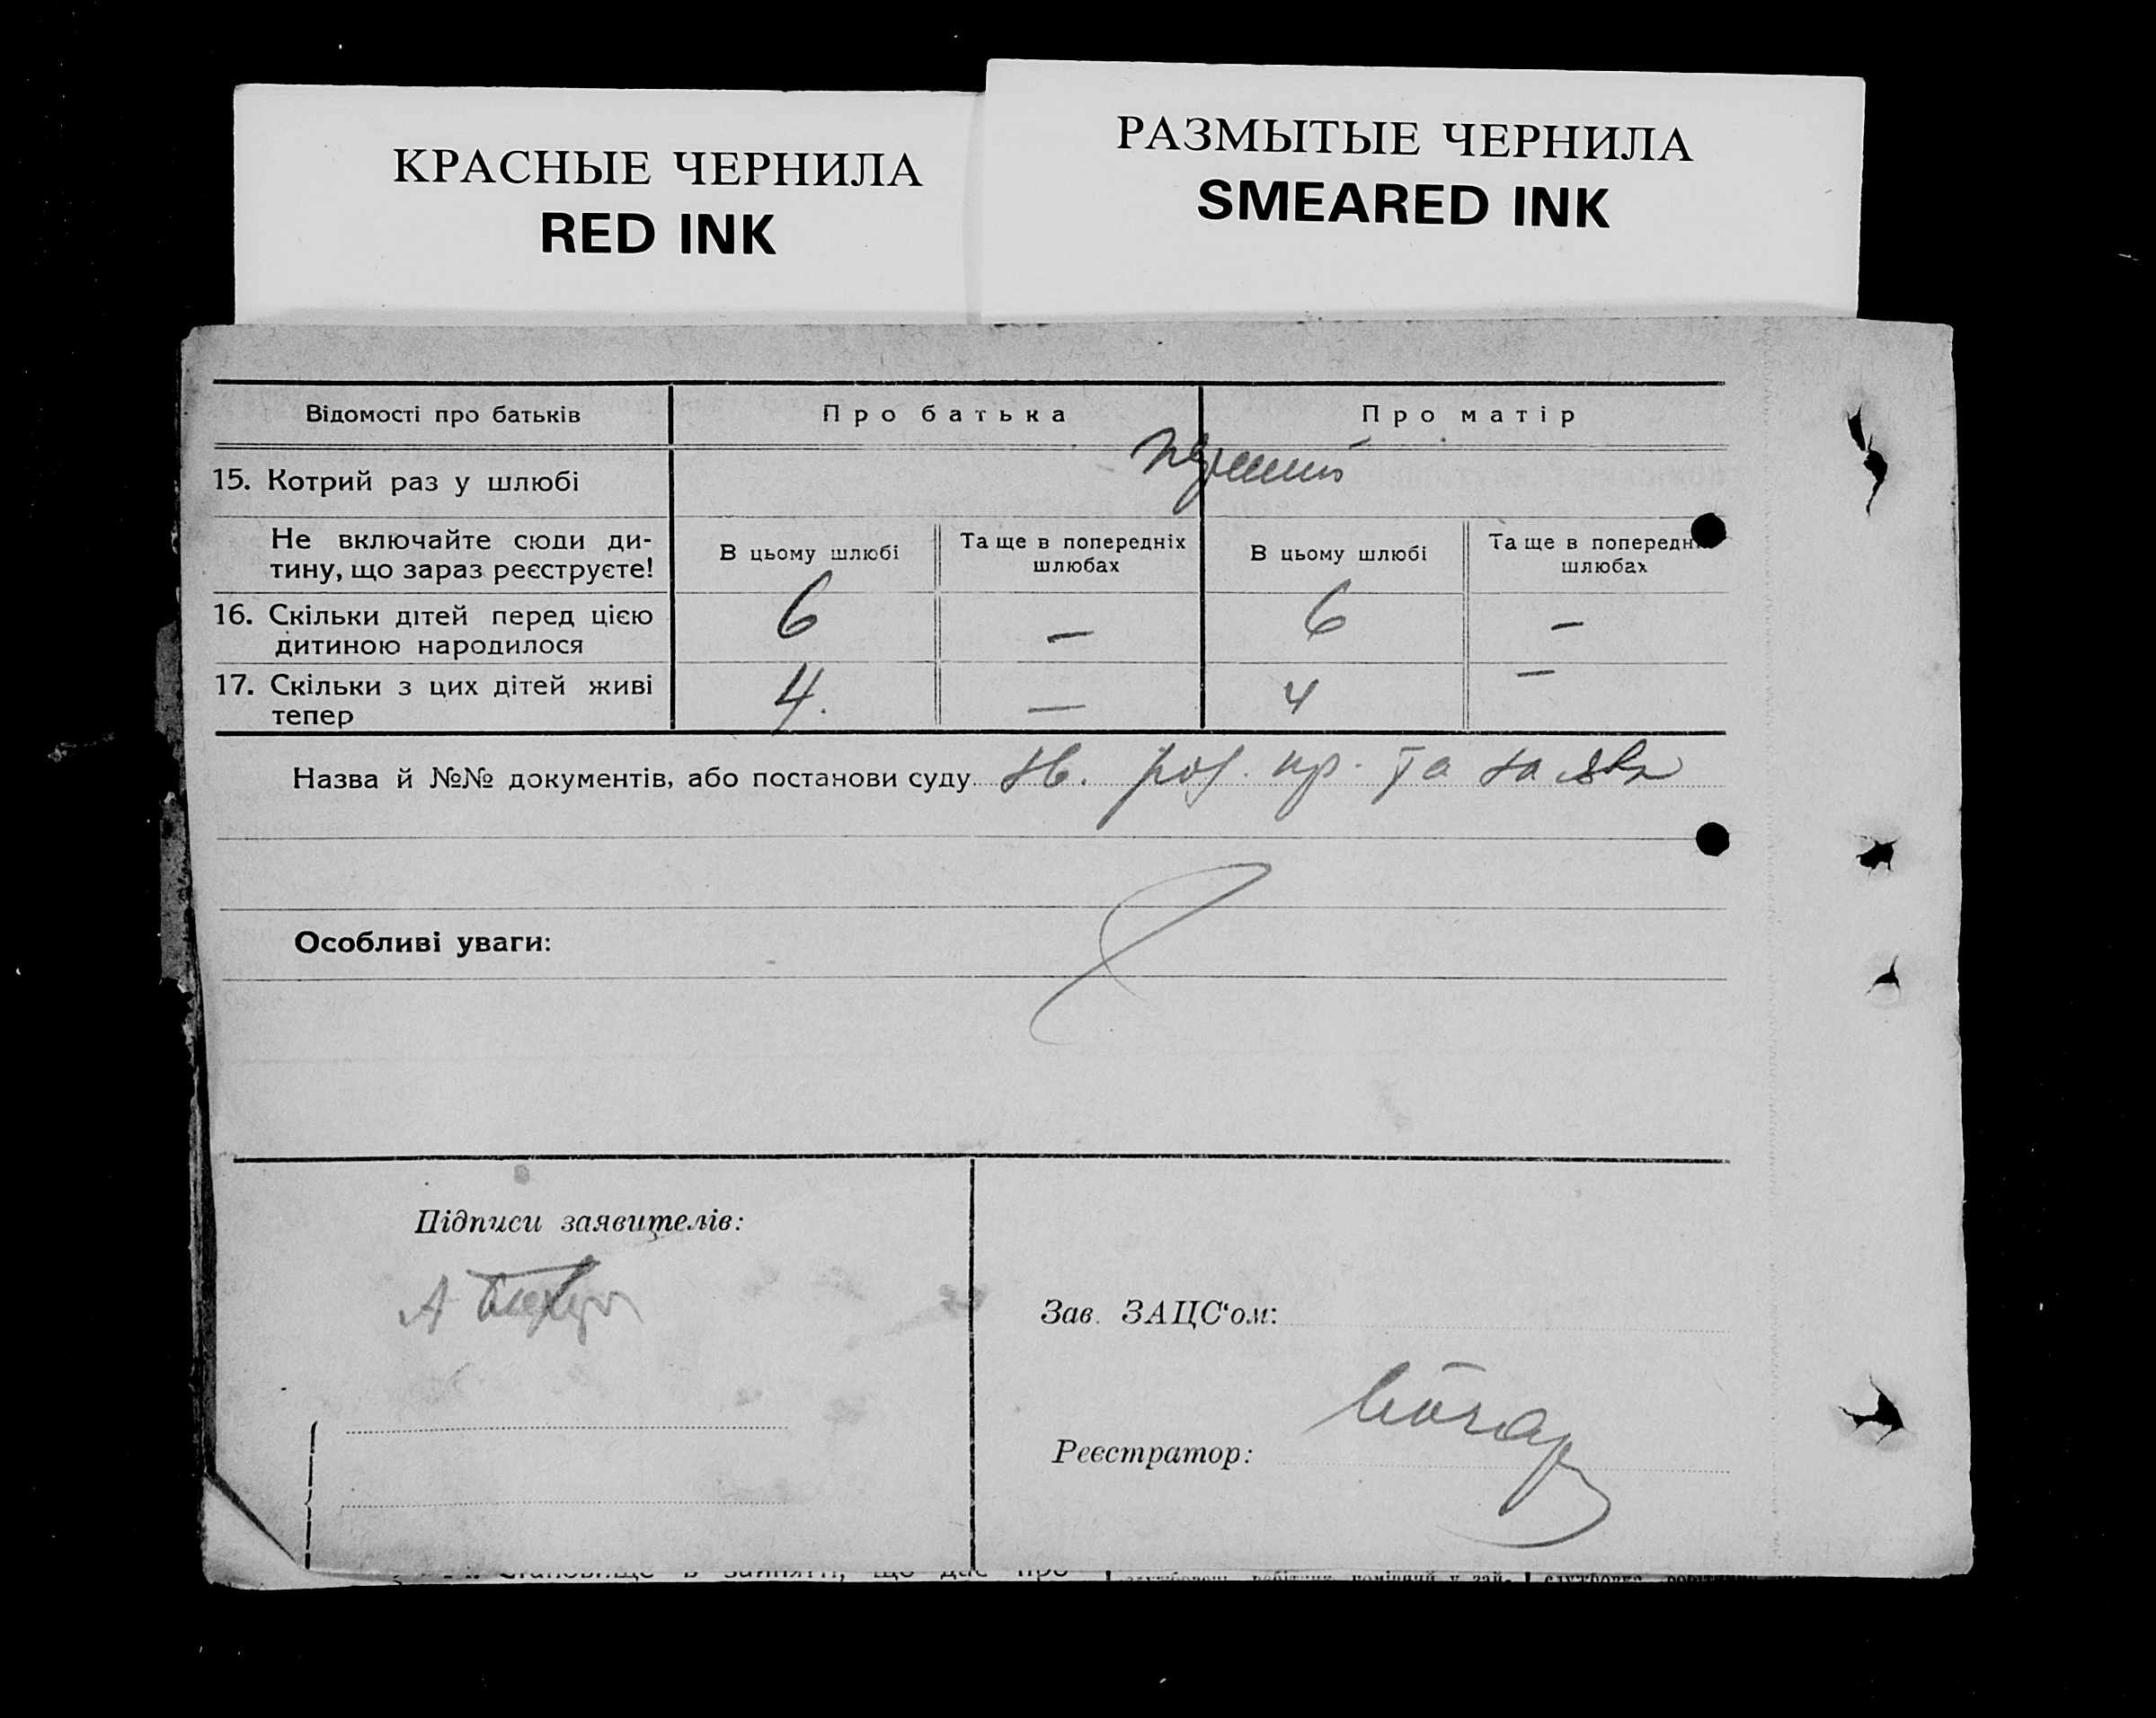 КРАСНЫЕ ЧЕРНИЛА
RED INK
РАЗМЫТЫЕ ЧЕРНИЛА
SMEARED INK
Відомості про батьків Про батька Про матір
15. Котрий раз у шлюбі
Не включайте сюди ди-
тину, що зараз реєструєте!
В цьому шлюбі
Та ще в попередніх
шлюбах
В цьому шлюбі
Та ще в
шлюбах
16. Скільки дітей перед цією
дитиною народилося
6 — 6 —
17. Скільки з цих дітей живі
тепер
4. — 4 —
Назва й №№ документів, або постанови суду пр. та
Особливі уваги:
Підписи заявителів:
А
Зав. ЗАЦС‘ом:
Реєстратор: